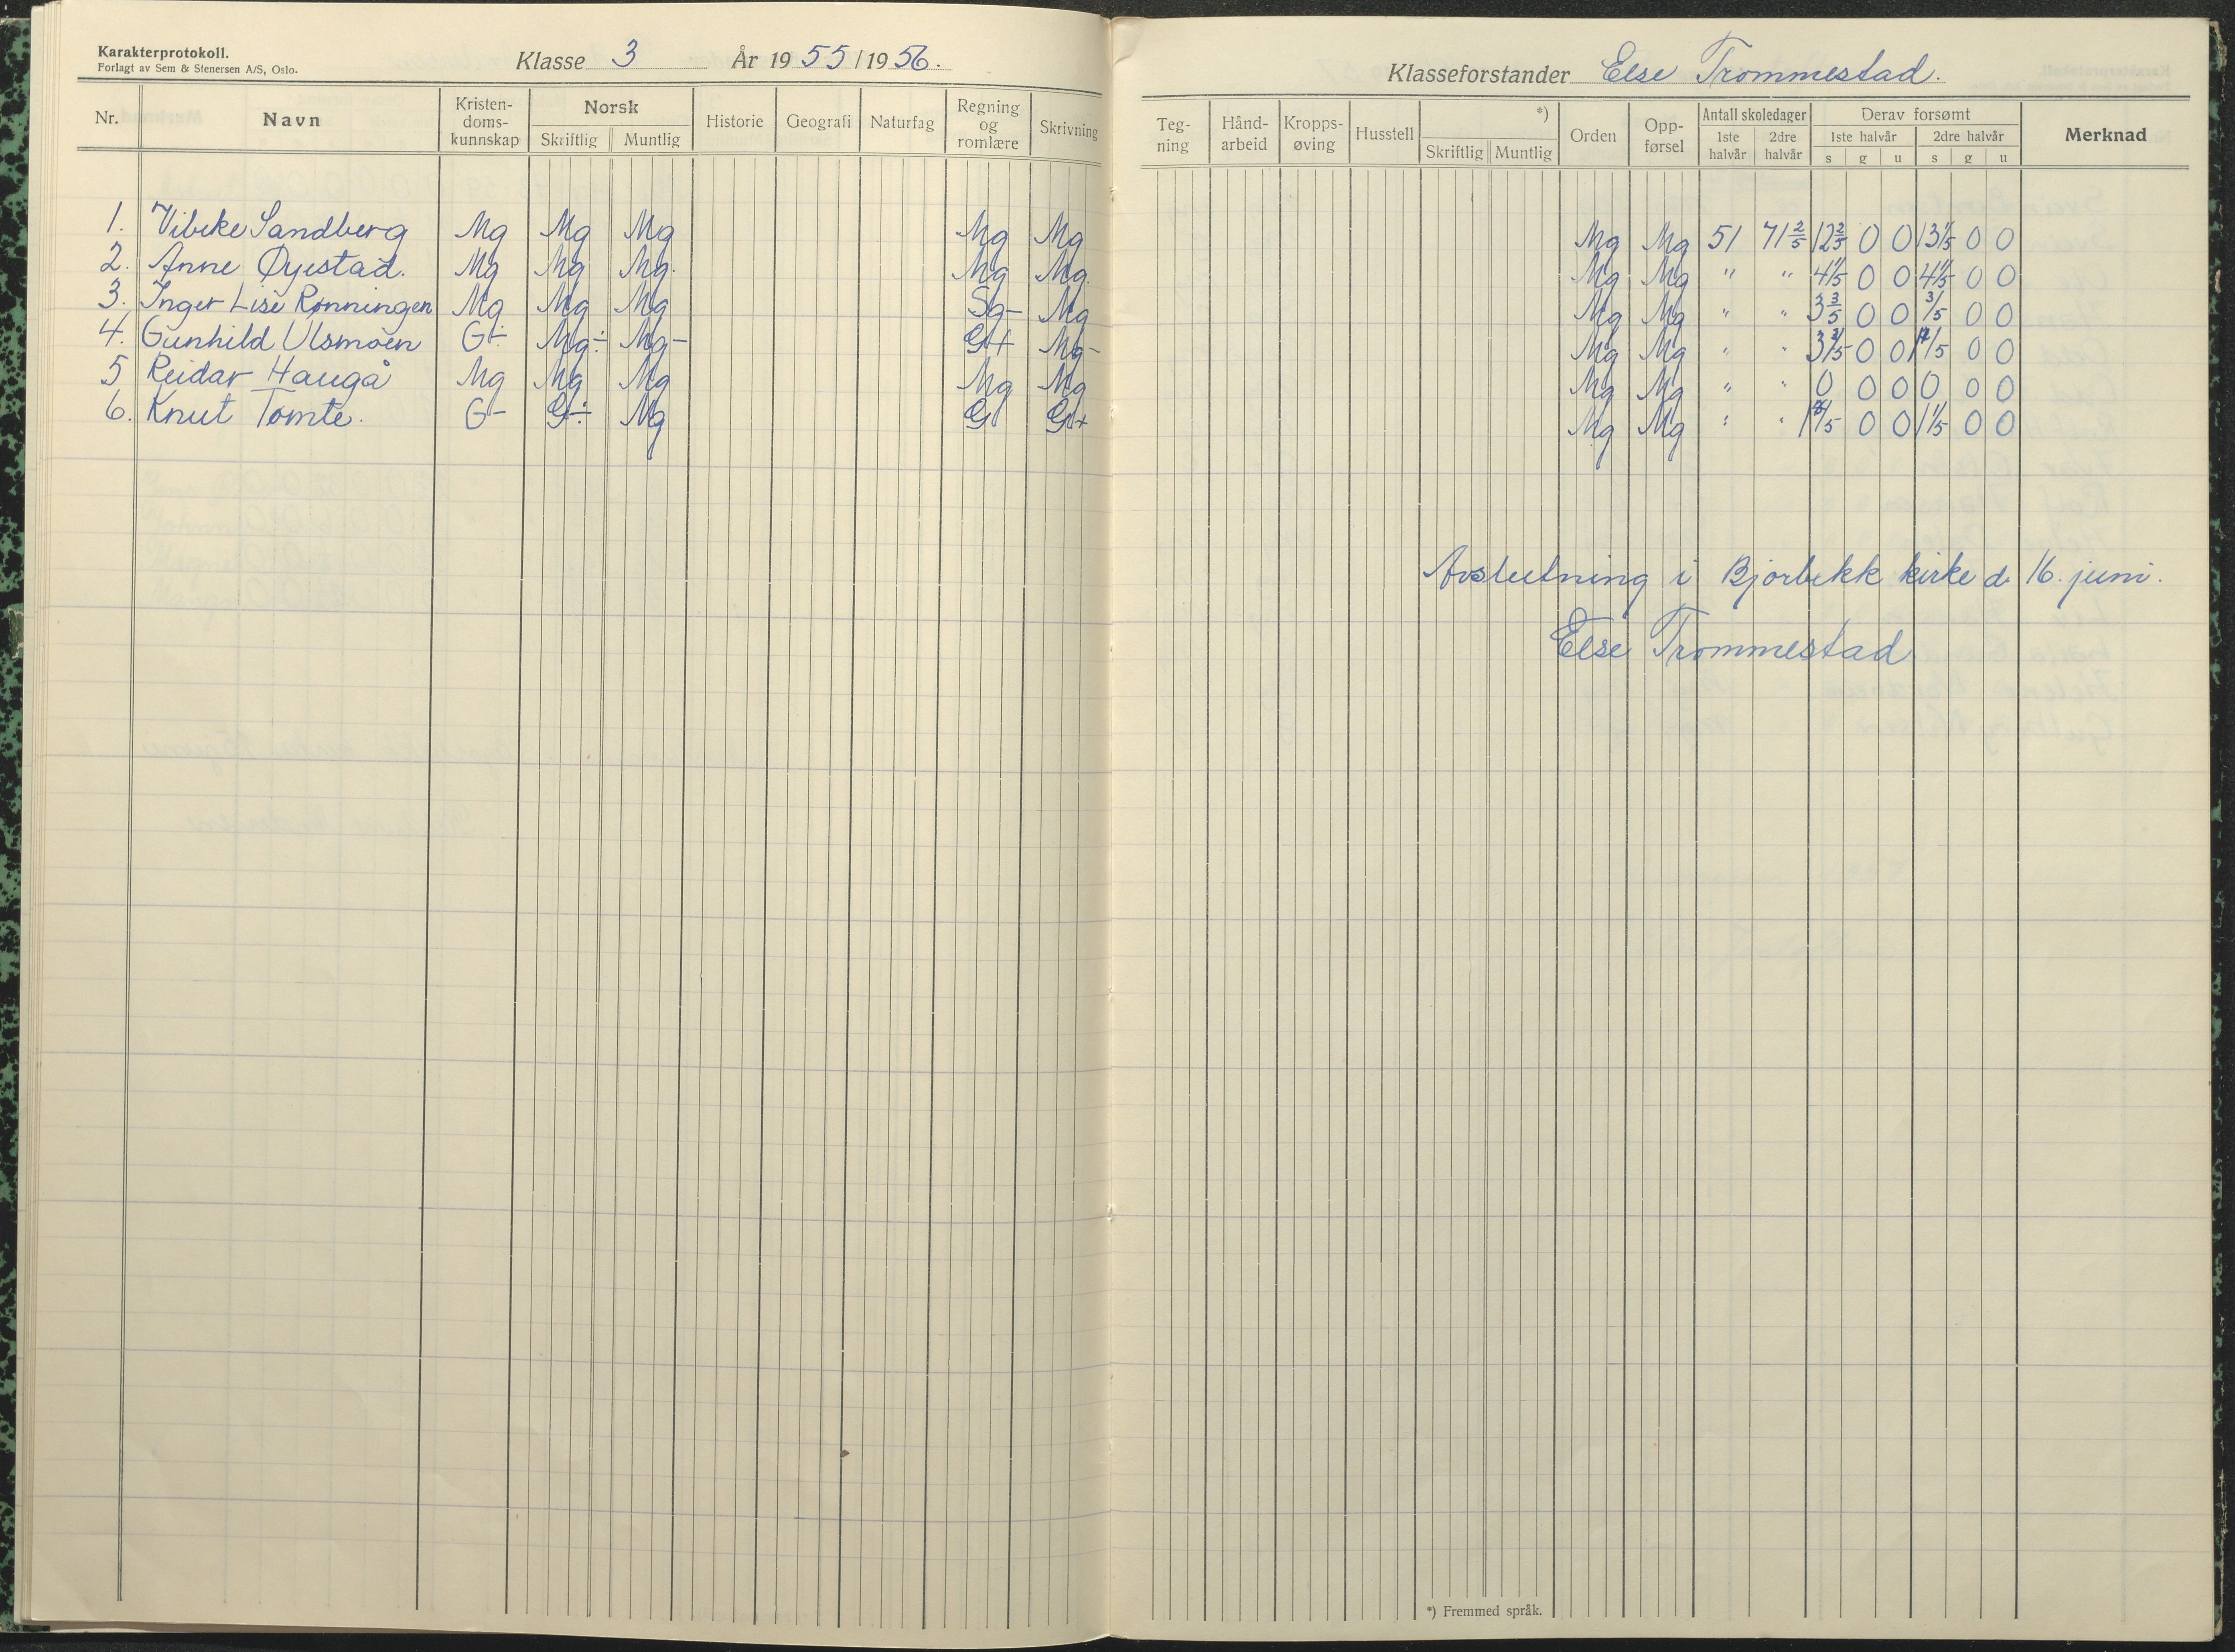 Karakterprotokoll.
Forlagt av Sem & Stenersen A/S, Oslo.
Klasse 3 År 1955/1956.
Nr. Navn Kristen-doms-kunnskap Norsk Skriftlig Muntlig Historie Geografi Naturfag Regning og romlære Skrivning
1. Vibeke Sandberg Mg Mg Mg Mg Mg
2. Anne Øyestad. Mg Mg Mg. Mg Mg.
3. Inger Lise Rønningen Mg Mg Mg Sg- Mg
4. Gunhild Ulsmoen G÷ Mg÷ Mg- G+ Mg-
5 Reidar Haugå Mg Mg Mg Mg Mg
6. Knut Tomte. G- G÷ Mg G G+
Klasseforstander Else Trommestad.
Teg-ning Hånd-arbeid Kropps-øving Husstell *) Skriftlig Muntlig Orden Opp-førsel Antall skoledager 1ste halvår 2dre halvår Derav forsømt 1ste halvår s g u 2dre halvår s g u Merknad
Mg Mg 51 71 2/5 12 2/5 0 0 13 1/5 0 0
Mg Mg " " 4 1/5 0 0 4 1/5 0 0
Mg Mg " " 3 3/5 0 0 3/5 0 0
Mg Mg " " 0 0 0 0
Mg Mg " " 0 0 0 0 0 0
Mg Mg " " 0 0 1 1/5 0 0
Avslutning i Bjorbekk kirke d. 16. juni.
Else Trommestad
*) Fremmed språk.